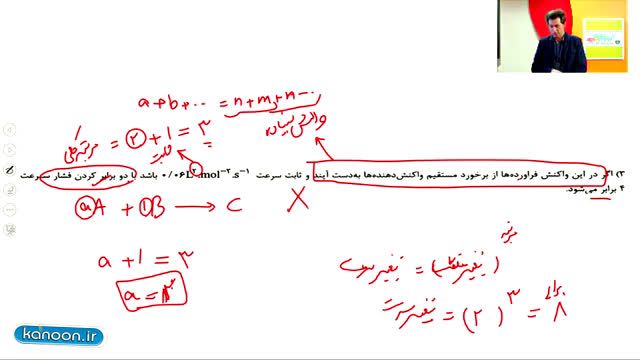 a + b + ... = n + m + n ...
واکنش بنیادی
مرتبه کلی = ② + 1 = 3
۳) اگر در این واکنش فراورده‌ها از برخورد مستقیم واکنش‌دهنده‌ها به‌دست آیند و ثابت سرعت ۰/۰۶L².mol⁻².s⁻¹ باشد با دو برابر کردن فشار سرعت
۴ برابر می‌شود.
aA + 1B → C X
a + 1 = 3
a = 2
مرتبه
تغییر سرعت = (تغییر غلظت)
تغییر سرعت = (2)³ = 8 برابر
kanoon.ir